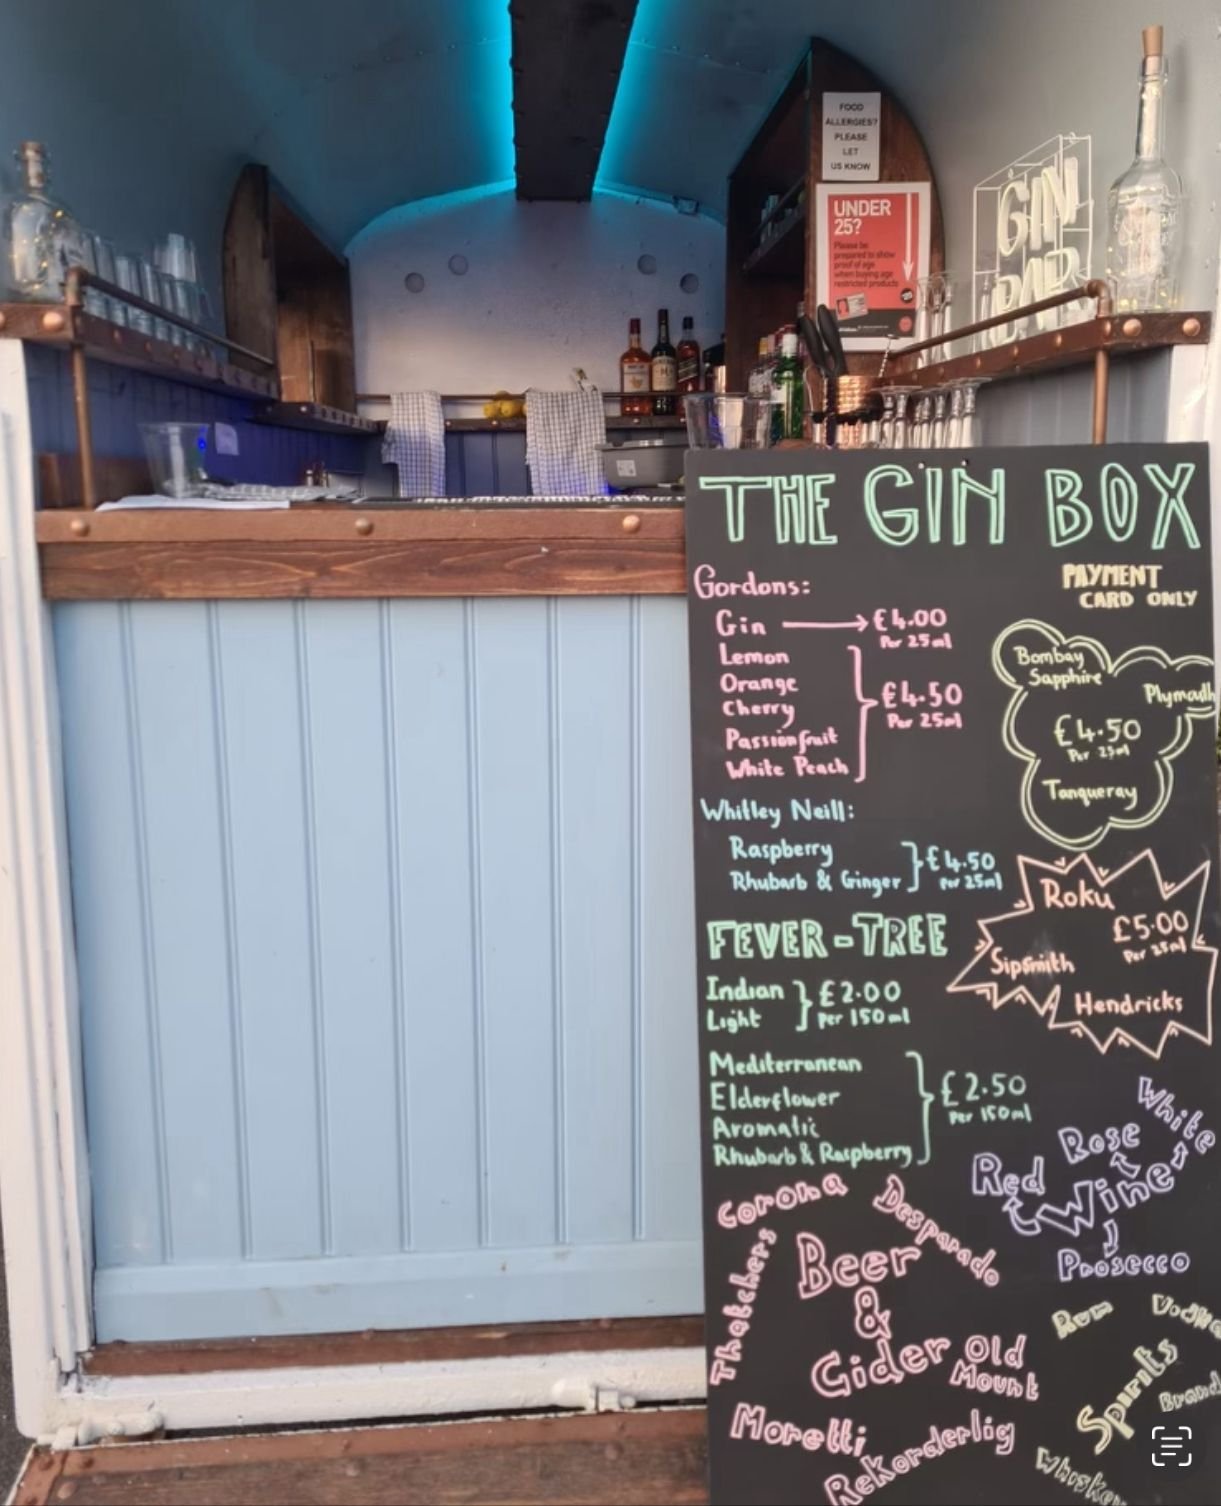 FOOD
ALLERGIES?
PLEASE
LET
US KNOW
UNDER
25?
Please be
prepared to show
proof of age
when buying age
restricted products
GIN
BAR
THE GIN BOX
PAYMENT
CARD ONLY
Gordons:
Gin £4.00
Per 25ml
Lemon
Orange
Cherry
Passionfruit
White Peach
£4.50
Per 25ml
Bombay
Sapphire
Plymouth
£4.50
Per 25ml
Tanqueray
Whitley Neill:
Raspberry
Rhubarb & Ginger
£4.50
Per 25ml
Roku
£5.00
Per 25ml
Sipsmith
Hendricks
FEVER-TREE
Indian
Light
£2.00
Per 150ml
Mediterranean
Elderflower
Aromatic
Rhubarb & Raspberry
£2.50
Per 150ml
White
Rose
Red
Wine
Prosecco
Corona
Desparado
Thatchers
Beer
&
Cider
Old
Mount
Moretti
Rekorderlig
Rum
Vodka
Spirits
Brand
Whiskey